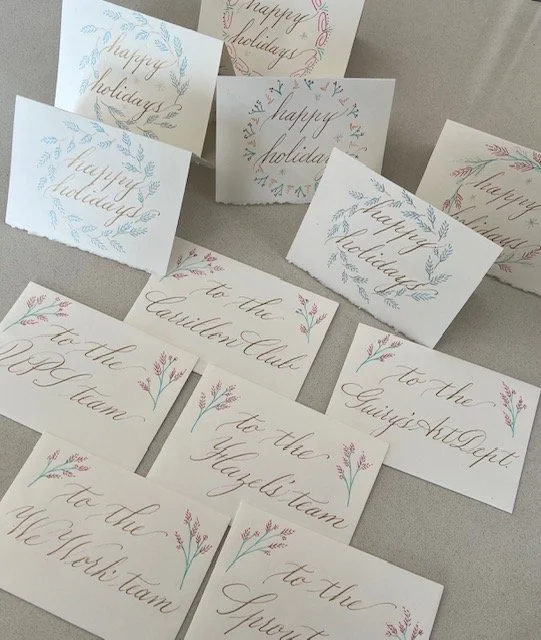 happy
holidays
happy
holidays
happy
holidays
happy
holidays
happy
holidays
happy
holidays
to the
Carrillon Club
to the
UPS team
to the
Guiry's Art Dept.
to the
Hazel's team
to the
WeWork team
to the
Sprout